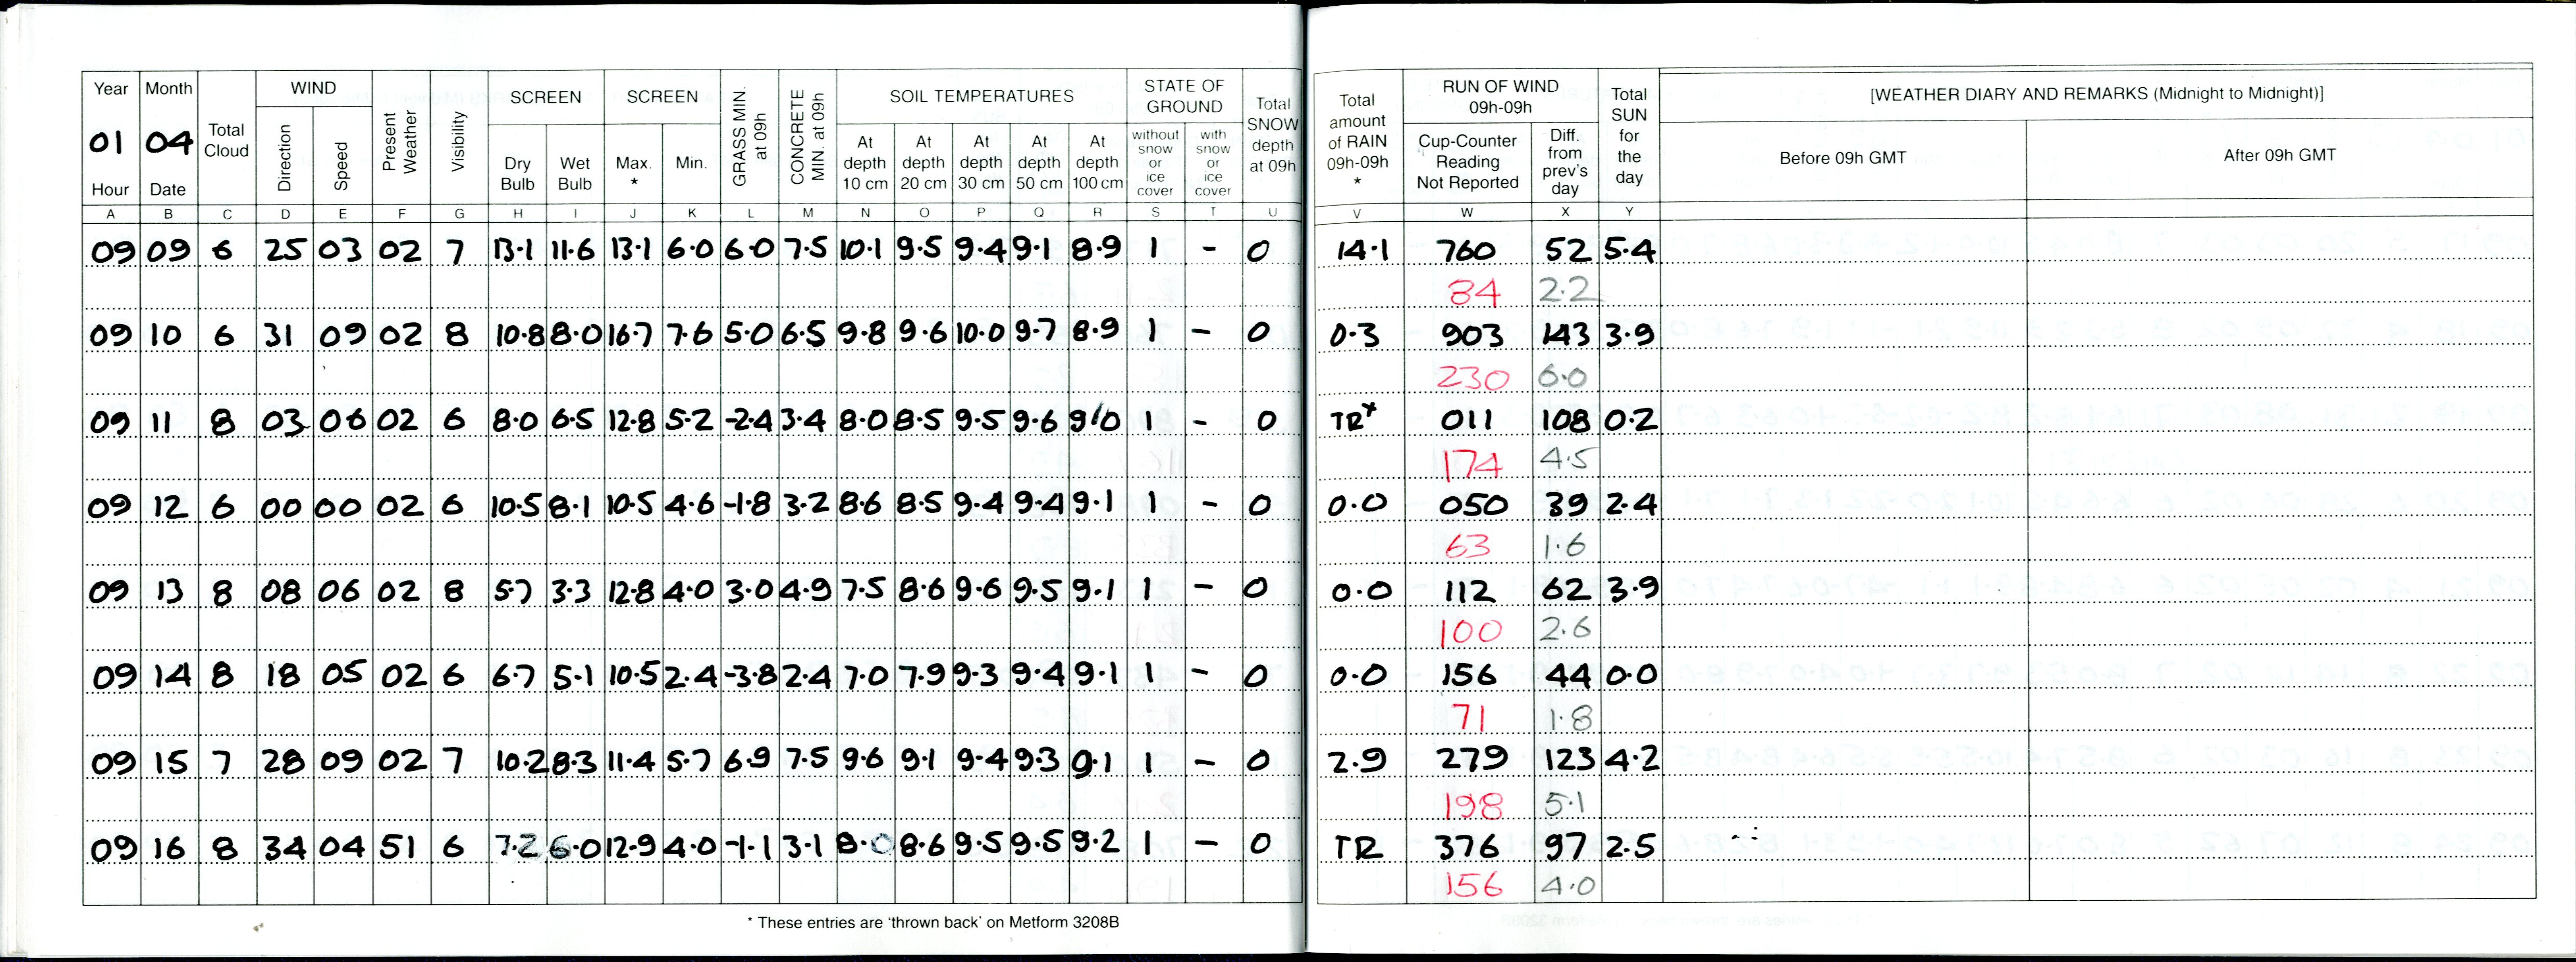 Year Month Total Cloud WIND Present Weather Visibility SCREEN SCREEN GRASS MIN. at 09h CONCRETE MIN. at 09h SOIL TEMPERATURES STATE OF GROUND Total SNOW depth at 09h Total amount of RAIN 09h-09h * RUN OF WIND 09h-09h Total SUN for the day [WEATHER DIARY AND REMARKS (Midnight to Midnight)]
01 04
Hour Date Direction Speed Dry Bulb Wet Bulb Max. * Min. At depth 10 cm At depth 20 cm At depth 30 cm At depth 50 cm At depth 100 cm without snow or ice cover with snow or ice cover Cup-Counter Reading Not Reported Diff. from prev's day Before 09h GMT After 09h GMT
A B C D E F G H I J K L M N O P Q R S T U V W X Y
09 09 6 25 03 02 7 13.1 11.6 13.1 6.0 6.0 7.5 10.1 9.5 9.4 9.1 8.9 1 - 0 14.1 760 52 5.4
84 2.2
09 10 6 31 09 02 8 10.8 8.0 16.7 7.6 5.0 6.5 9.8 9.6 10.0 9.7 8.9 1 - 0 0.3 903 143 3.9
230 6.0
09 11 8 03 06 02 6 8.0 6.5 12.8 5.2 -2.4 3.4 8.0 8.5 9.5 9.6 9.0 1 - 0 TR* 011 108 0.2
174 4.5
09 12 6 00 00 02 6 10.5 8.1 10.5 4.6 -1.8 3.2 8.6 8.5 9.4 9.4 9.1 1 - 0 0.0 050 39 2.4
63 1.6
09 13 8 08 06 02 8 5.7 3.3 12.8 4.0 3.0 4.9 7.5 8.6 9.6 9.5 9.1 1 - 0 0.0 112 62 3.9
100 2.6
09 14 8 18 05 02 6 6.7 5.1 10.5 2.4 -3.8 2.4 7.0 7.9 9.3 9.4 9.1 1 - 0 0.0 156 44 0.0
71 1.8
09 15 7 28 09 02 7 10.2 8.3 11.4 5.7 6.9 7.5 9.6 9.1 9.4 9.3 9.1 1 - 0 2.9 279 123 4.2
198 5.1
09 16 8 34 04 51 6 7.2 6.0 12.9 4.0 -1.1 3.1 8.0 8.6 9.5 9.5 9.2 1 - 0 TR 376 97 2.5
156 4.0
* These entries are 'thrown back' on Metform 3208B